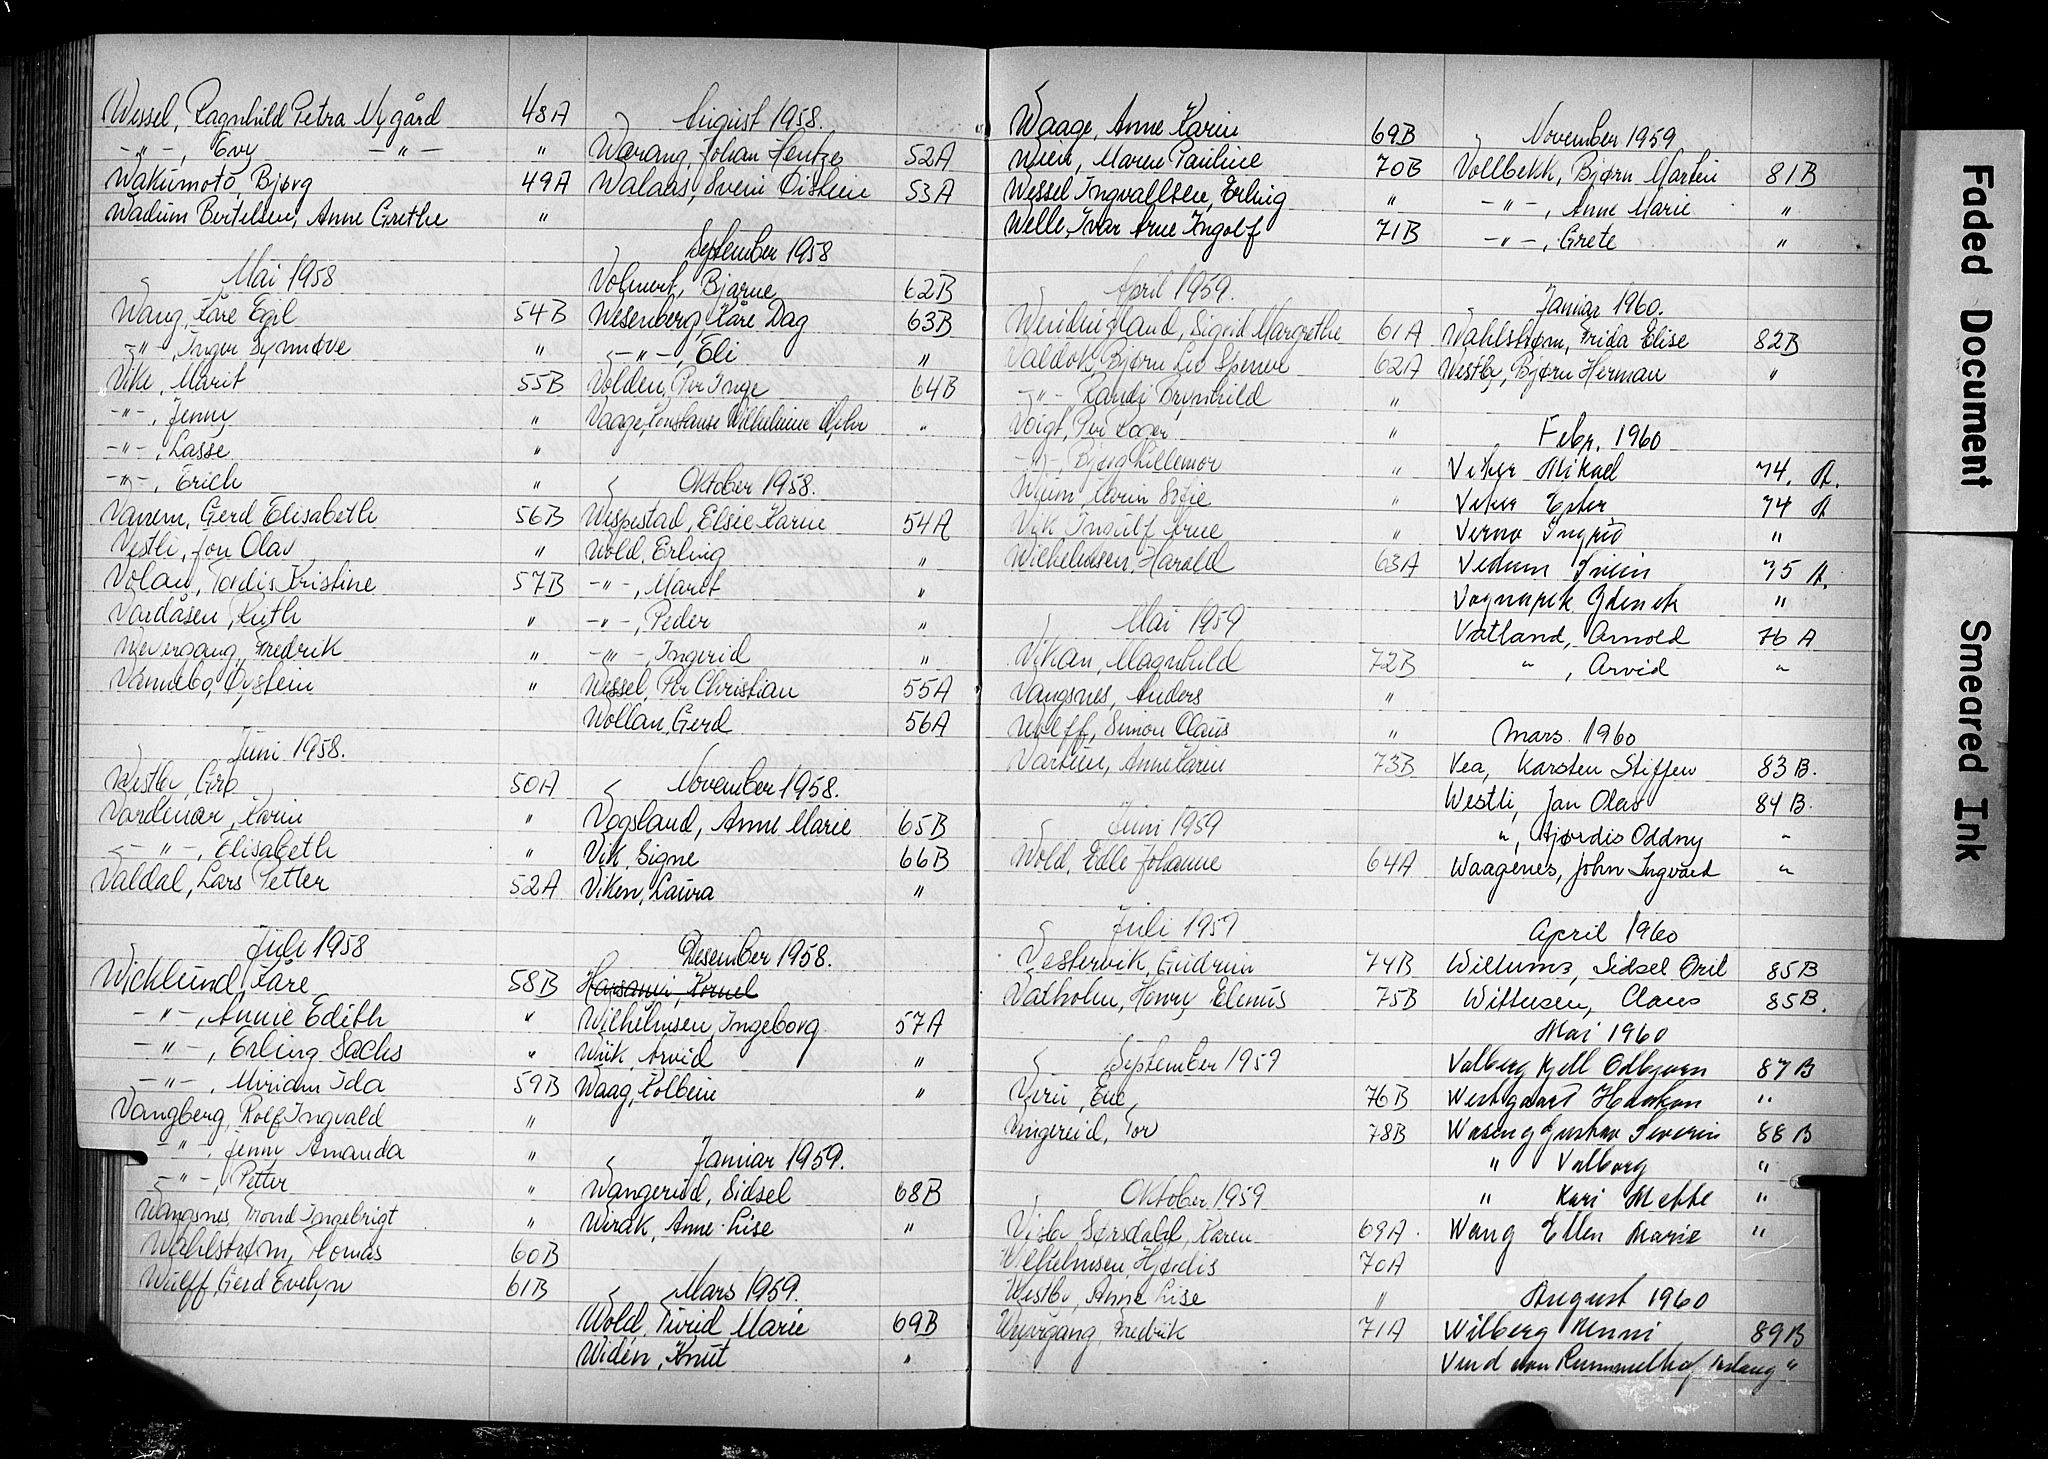 Wessel, Ragnhild Petra Nygård 48A
-"-, Evy -"- "
Wakumoto, Bjørg 49A
Wadum Bertelsen, Anne Grethe "
Mai 1958
Wang, Kåre Egil 54B
-"-, Inger Synnøve "
Vik, Marit 55B
-"-, Jenny "
-"-, Lasse "
-"-, Erich "
Vanem, Gerd Elisabeth 56B
Vestli, Jon Olav "
Volan, Tordis Kristine 57B
Vardåsen, Ruth "
Wevergang, Fredrik "
Vannebo, Øystein "
Juni 1958.
Westby, Gro 50A
Vardenær, Karin "
-"-, Elisabeth "
Valdal, Lars Petter 52A
Juli 1958
Wicklund, Kåre 58B
-"-, Annie Edith "
-"-, Erling Sachs "
-"-, Miriam Ida 59B
Vangberg, Rolf Ingvald "
-"-, Jenny Amanda "
-"-, Petter "
Vangsnes, Trond Ingebrigt "
Wahlstrøm, Tomas 60B
Wulff, Gerd Evelyn 61B
August 1958.
Warang, Johan Hentze 52A
Walaas, Svein Øistein 53A
September 1958
Volmert, Bjarne 62B
Wesenberg, Kåre Dag 63B
-"-, Eli "
Volden, Per Inge 64B
Vaage, Constanse Wilhelmine "
Oktober 1958.
Wispestad, Elsie Karin 54A
Wold, Erling "
-"-, Marit "
-"-, Peder "
-"-, Ingerid "
Wessel, Per Christian 55A
Wollan, Gerd 56A
November 1958.
Vogsland, Anne Marie 65B
Vik, Signe 66B
Viken, Laura "
Desember 1958.
Harsanvi, Kornel
Wilhelmsen, Ingeborg 57A
Wiik, Arvid "
Waag, Kolbein "
Januar 1959.
Wangerud, Sidsel 68B
Wirak, Anne-Lise "
Mars 1959.
Wold, Turid Marie 69B
Widén, Knut "
Waage, Anne Karin 69B
Wien, Maren Pauline 70B
Wessel Ingvallsen, Erling "
Welle, Ivar Arne Ingolf 71B
April 1959.
Wendingland, Sigrid Margrethe 61A
Valdok, Bjørn Leo Spenve 62A
-"- Randi Brynhild "
Voigt, Per Roger "
-"-, Bjørg Lillemor "
Wium, Karin Sofie "
Vik Ingulf Arne "
Wilhelmsen, Harald 63A
Mai 1959
Vikan, Magnhild 72B
Vangsnes, Anders "
Wolff, Simon Claus "
Vartun, Anne Karin 73B
Juni 1959
Wold, Edle Johanne 64A
Juli 1959
Vestervik, Gudrun 74B
Vatholm, Henry Elenus 75B
September 1959
Viru, Enε 76B
Vingereid, Tor 78B
Oktober 1959
Visby Sørsdahl, Karen 69A.
Wilhelmsen, Hjørdis 70A
Westby, Anne Lise "
Wevrgang, Fredrik 71A
November 1959
Vollbekk, Bjørn Martin 81B
-"-, Anne Marie "
-"-, Grete "
Januar 1960.
Wahlstrøm, Frida Elise 82B
Westby, Bjørn Herman "
Febr. 1960
Viker Mikael 74. A.
Viker Ester 74 A
Verno Ingrid "
Vedum Svein 75 A.
Vognapek Zdenek "
Vatland, Arnold 76 A
" , Arvid "
Mars. 1960
Vea, Karsten Steffen 83 B.
Westli, Jan Olav 84 B.
", Hjørdis Oddny "
Waagenes, John Ingvard "
April 1960
Willums, Sidsel Oril 85B
Wittusen, Claus 85B.
Mai 1960
Valberg Kjell Odbjørn 87 B
Westgaard Haakon "
Waseng Gustav Severin 88 B
" Valborg "
" Kari Mette "
Wang Ellen Marie "
August 1960
Wilberg Unni 89B
Vind von Rummelhof, Aslaug "
Faded Document
Smeared Ink